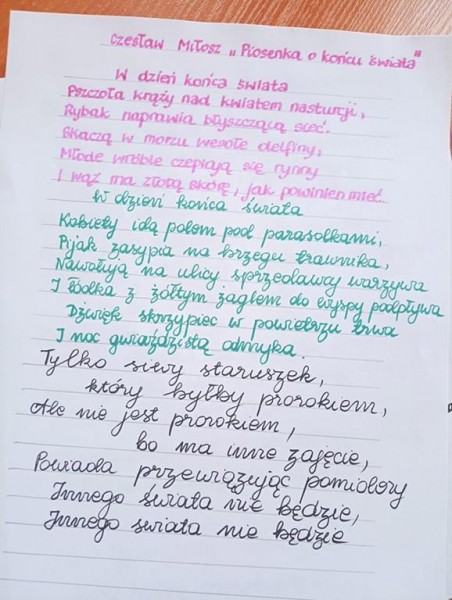 Czesław Miłosz „Piosenka o końcu świata"
W dzień końca świata
Pszczoła krąży nad kwiatem nasturcji,
Rybak naprawia błyszczącą sieć.
Skaczą w morzu wesołe delfiny,
Młode wróble czepiają się rynny
I wąż ma złotą skórę, jak powinien mieć.
W dzień końca świata
Kobiety idą polem pod parasolkami,
Pijak zasypia na brzegu trawnika,
Nawołują na ulicy sprzedawcy warzywa
I łódka z żółtym żaglem do wyspy podpływa
Dźwięk skrzypiec w powietrzu trwa
I noc gwiaździstą odmyka.
Tylko siwy staruszek,
który byłby prorokiem,
Ale nie jest prorokiem,
bo ma inne zajęcie,
Powiada przewiązując pomidory
Innego świata nie będzie,
Innego świata nie będzie